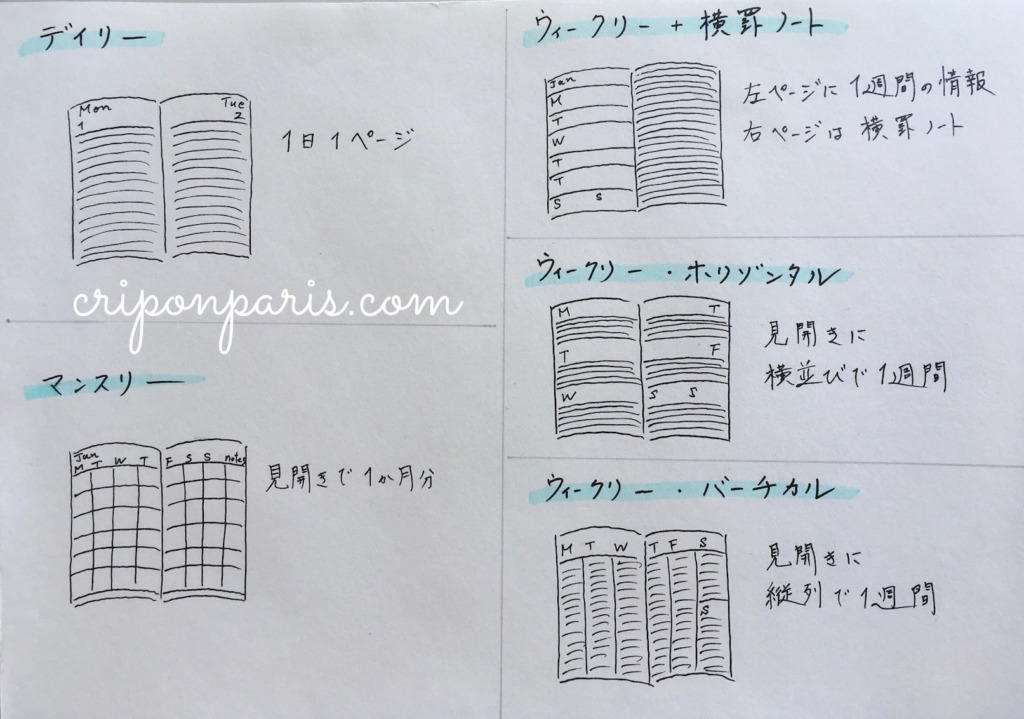 デイリー
Mon
1
Tue
2
1日1ページ
criponparis.com
マンスリー
Jan
M T W T F S S notes
見開きで1か月分
ウィークリー + 横罫ノート
Jan
M
T
W
T
T
S S
左ページに1週間の情報
右ページは横罫ノート
ウィークリー・ホリゾンタル
M
T
W
T
F
S S
見開きに
横並びで1週間
ウィークリー・バーチカル
M T W T F S
S
見開きに
縦列で1週間